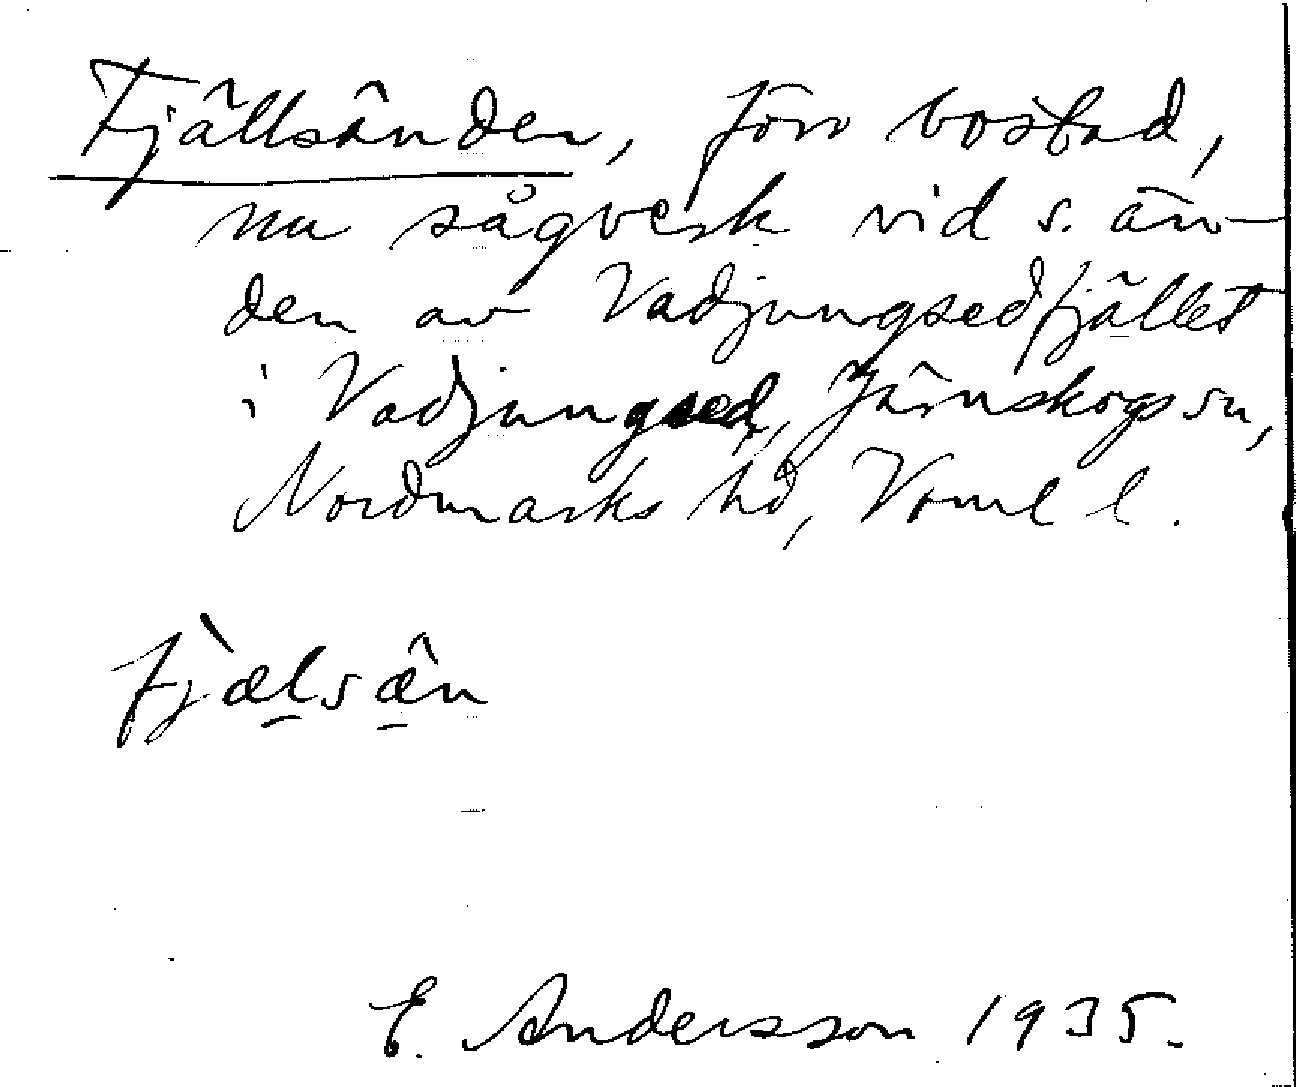 Fjällsänden, förr bostad,
nu sågverk vid s. än-
den av Vadjungsedfjället
i Vadjungsed, Järnskogs sn,
Nordmarks hd, Vrml l.
fjælsæ̂n
E. Andersson 1935.